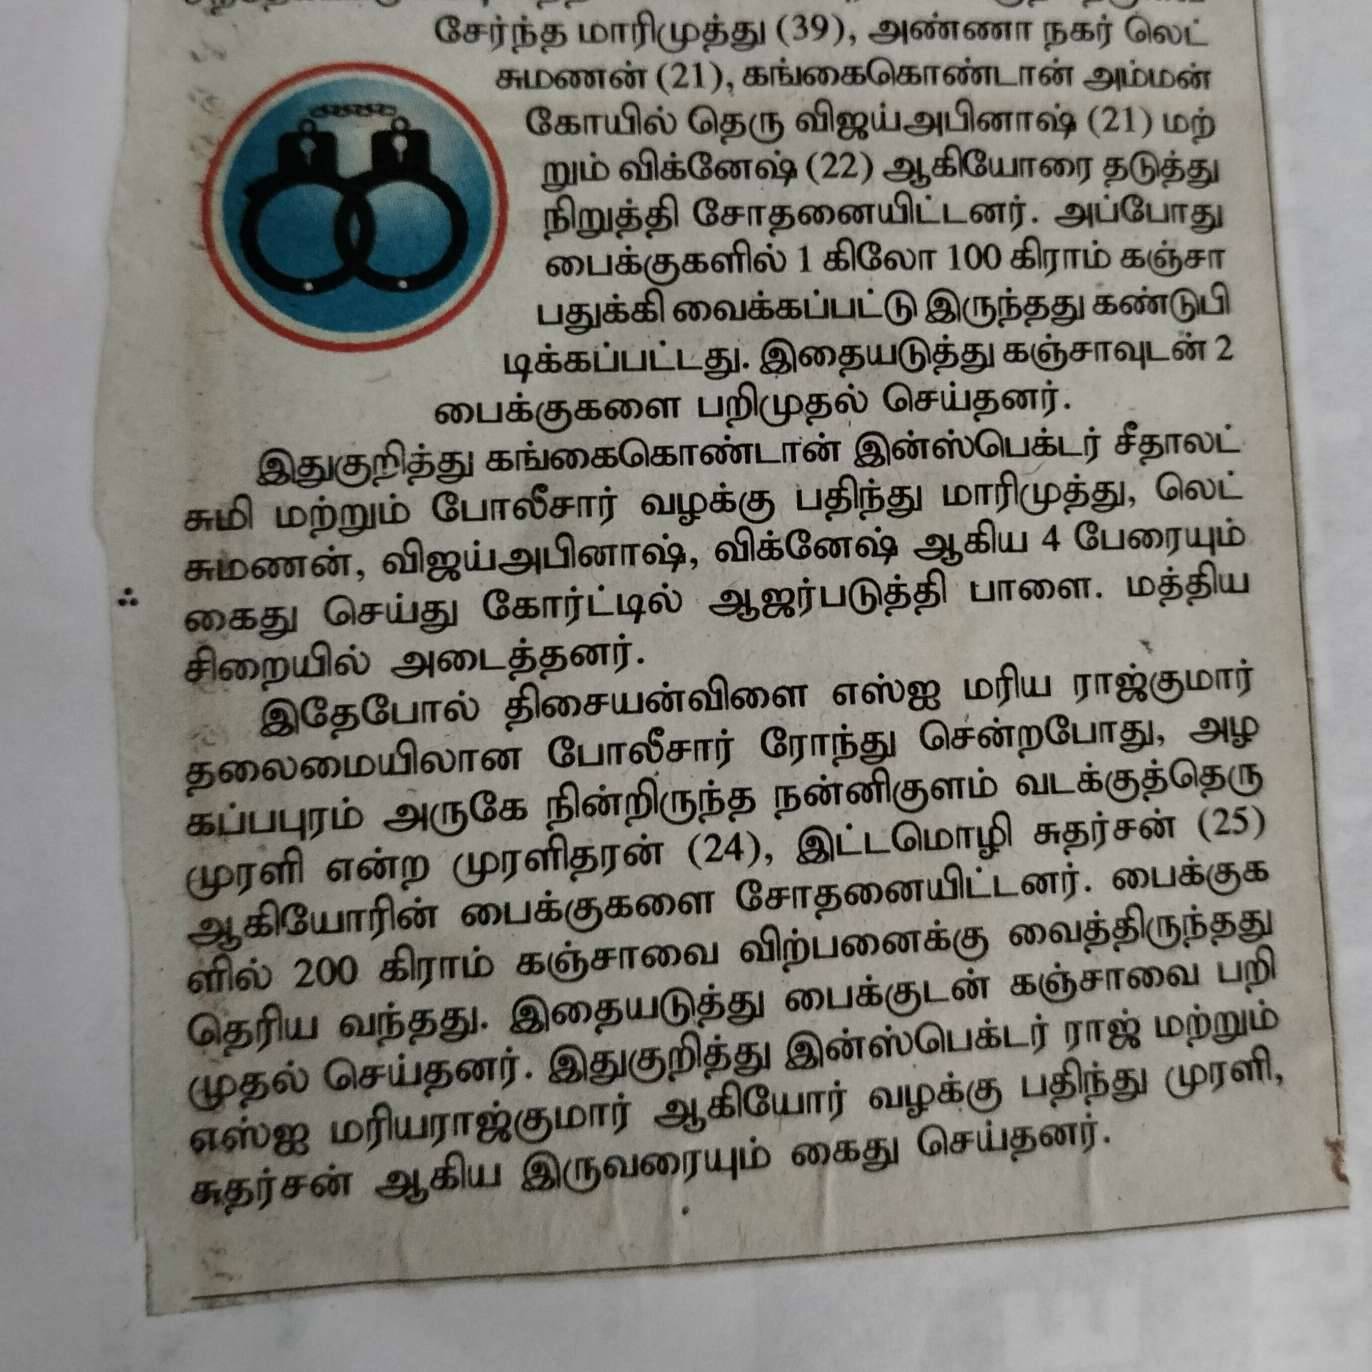 சேர்ந்த மாரிமுத்து (39), அண்ணா நகர் லெட்
சுமணன் (21), கங்கைகொண்டான் அம்மன்
கோயில் தெரு விஜய்அபினாஷ் (21) மற்
றும் விக்னேஷ் (22) ஆகியோரை தடுத்து
நிறுத்தி சோதனையிட்டனர். அப்போது
பைக்குகளில் 1 கிலோ 100 கிராம் கஞ்சா
பதுக்கி வைக்கப்பட்டு இருந்தது கண்டுபி
டிக்கப்பட்டது. இதையடுத்து கஞ்சாவுடன் 2
பைக்குகளை பறிமுதல் செய்தனர்.
இதுகுறித்து கங்கைகொண்டான் இன்ஸ்பெக்டர் சீதாலட்
சுமி மற்றும் போலீசார் வழக்கு பதிந்து மாரிமுத்து, லெட்
சுமணன், விஜய்அபினாஷ், விக்னேஷ் ஆகிய 4 பேரையும்
கைது செய்து கோர்ட்டில் ஆஜர்படுத்தி பாளை. மத்திய
சிறையில் அடைத்தனர்.
இதேபோல் திசையன்விளை எஸ்ஐ மரிய ராஜ்குமார்
தலைமையிலான போலீசார் ரோந்து சென்றபோது, அழ
கப்பபுரம் அருகே நின்றிருந்த நன்னிகுளம் வடக்குத்தெரு
முரளி என்ற முரளிதரன் (24), இட்டமொழி சுதர்சன் (25)
ஆகியோரின் பைக்குகளை சோதனையிட்டனர். பைக்குக
ளில் 200 கிராம் கஞ்சாவை விற்பனைக்கு வைத்திருந்தது
தெரிய வந்தது. இதையடுத்து பைக்குடன் கஞ்சாவை பறி
முதல் செய்தனர். இதுகுறித்து இன்ஸ்பெக்டர் ராஜ் மற்றும்
எஸ்ஐ மரியராஜ்குமார் ஆகியோர் வழக்கு பதிந்து முரளி,
சுதர்சன் ஆகிய இருவரையும் கைது செய்தனர்.